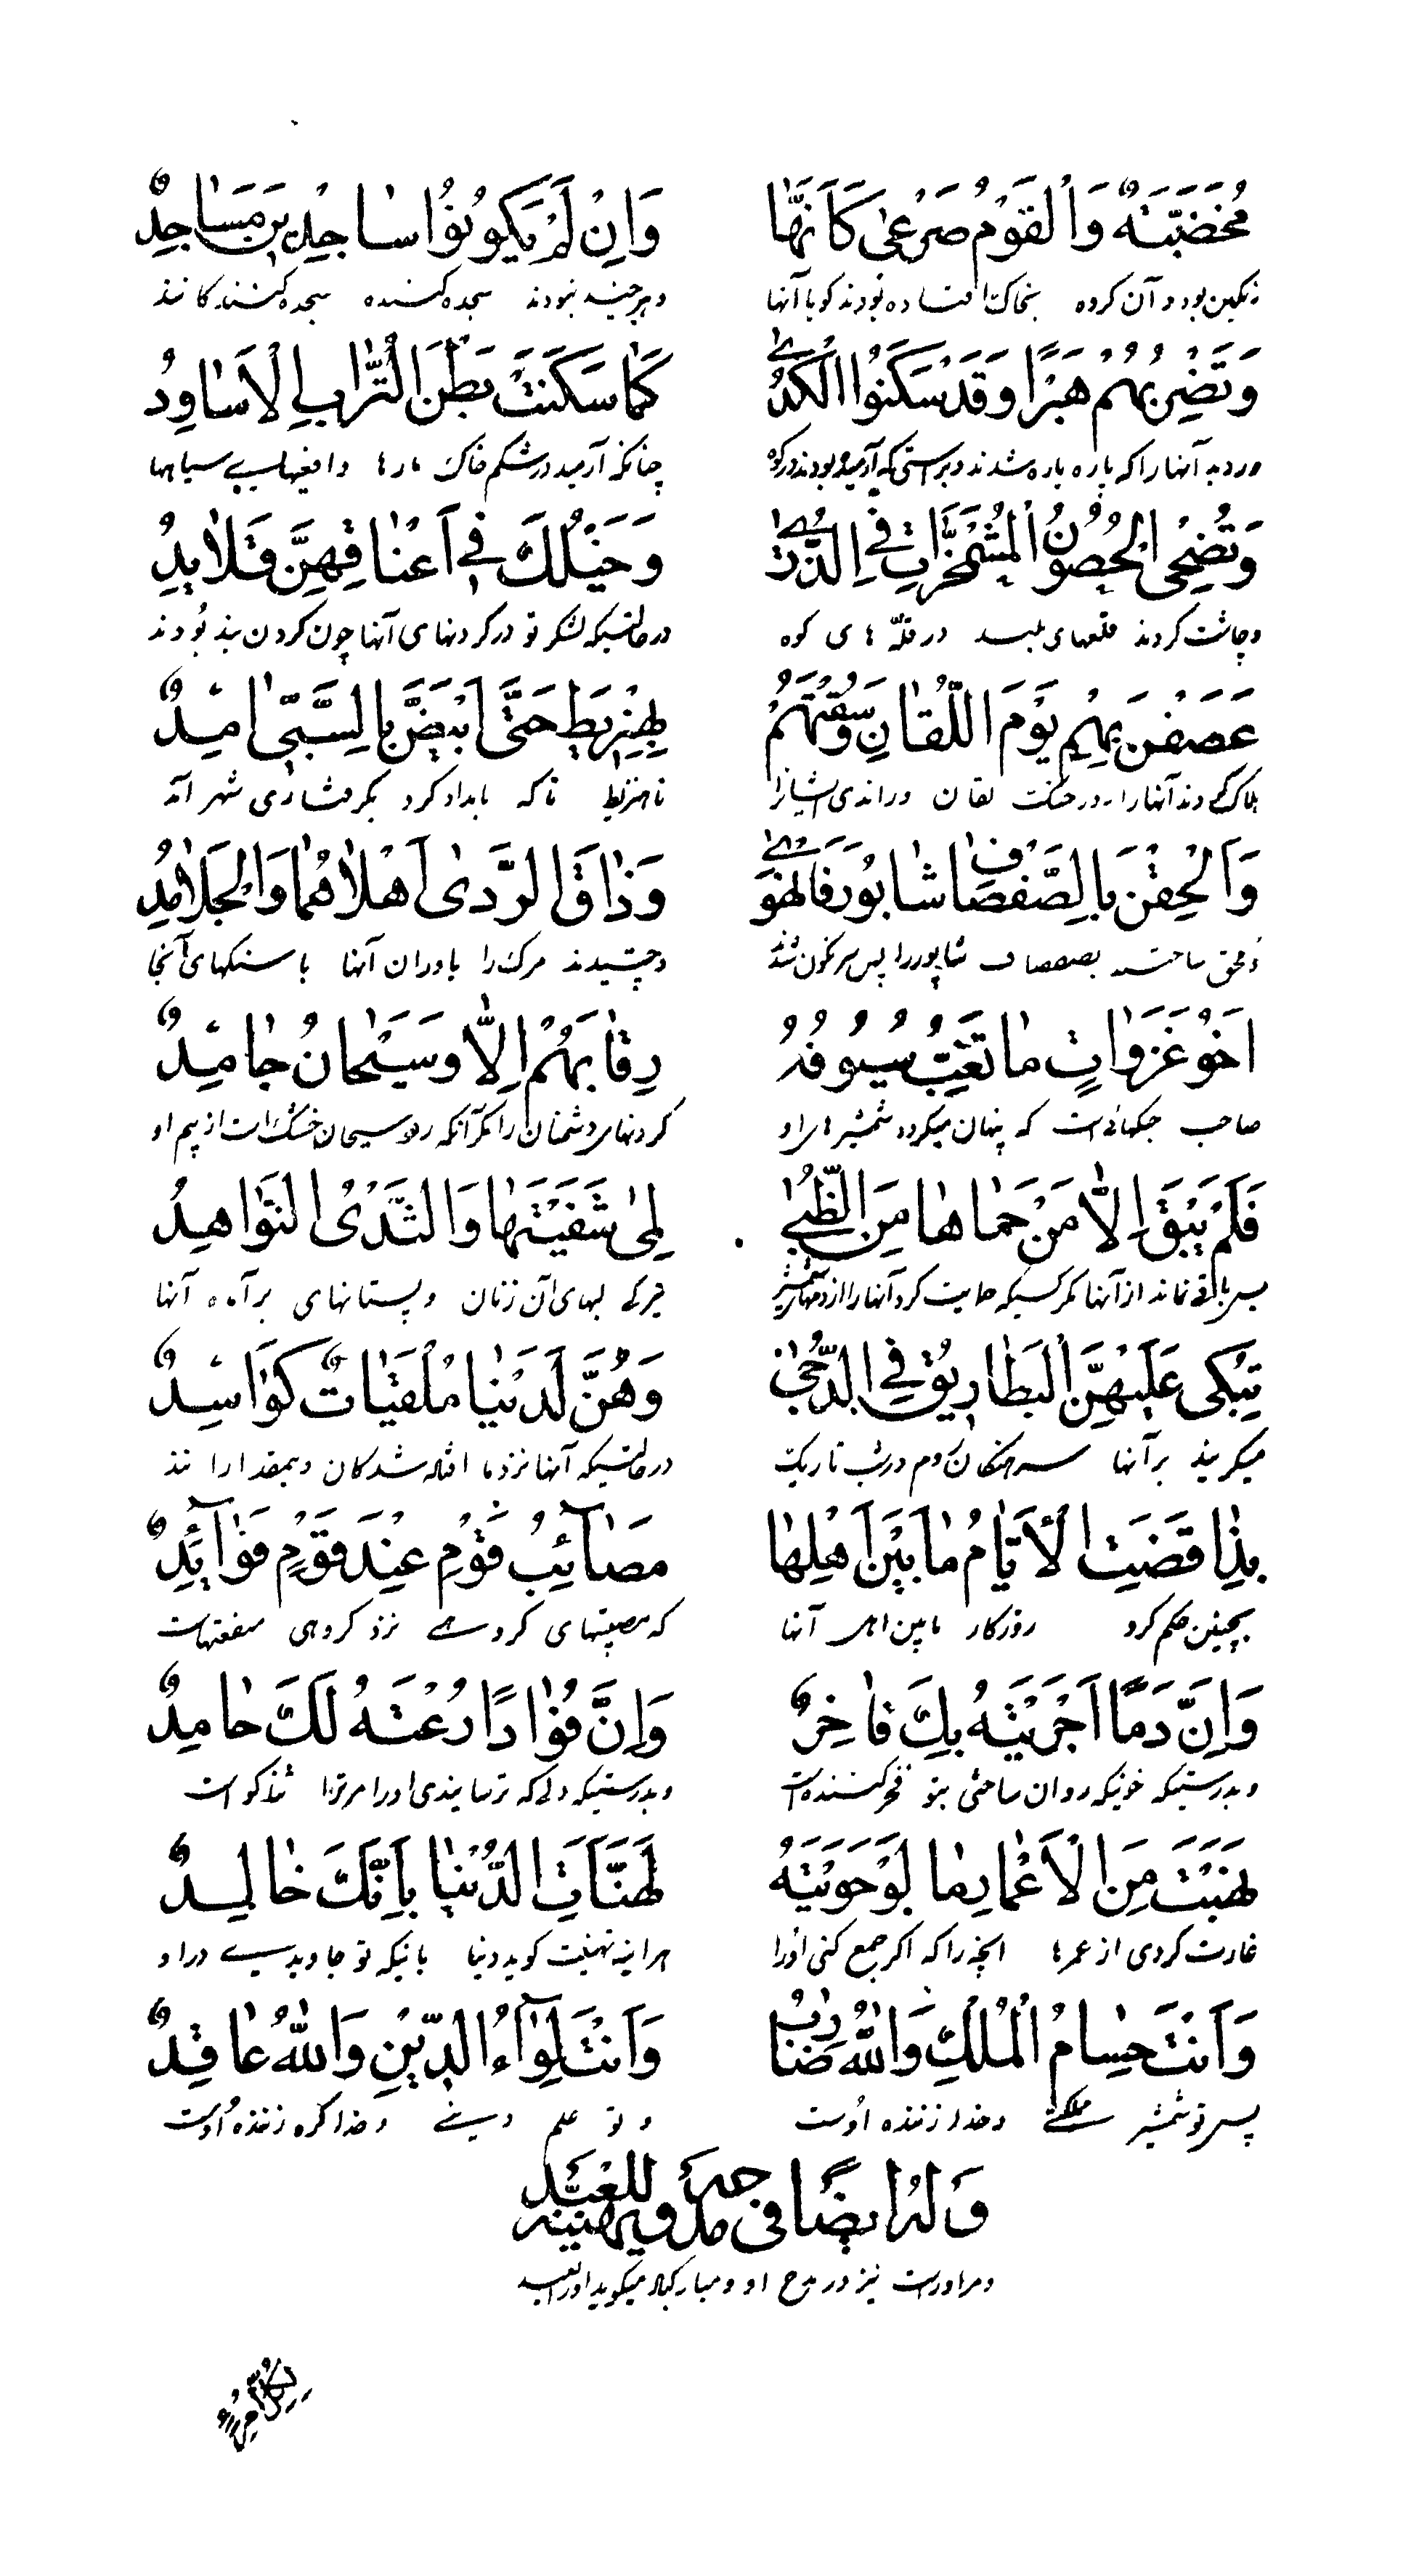 مُخَضَّبَةٌ وَالْقَوْمُ صَرْعٰى كَاَنَّهَا وَاِنْ لَمْ يَكُونُوا سَاجِدِينَ مَسَاجِدٌ
رنگین بود و آن گروه بخاک افتاده بودند گویا آنها و هر چند نبودند سجده کننده سجده کنندگانند
وَتَضْرِبُهُمْ هَبْرًا وَقَدْ سَكَنُوا الْكُدٰى كَمَا سَكَنَتْ بَطْنَ التُّرَابِ الْاَسَاوِدُ
آنها را که پاره پاره شدند و بدرستی که آرمیده بودند در کوه چنانکه آرمید در شکم خاک مارها و افعیهای سیاهها
وَتُضْحِى الْحُصُونُ الْمُشْمَخِرَّاتُ فِى الذُّرٰى وَخَيْلُكَ فِى اَعْنَاقِهِنَّ قَلَايِدُ
و چاشت کردند قلعهای بلند در قلّه های کوه در حالتیکه لشکر تو در گردنهای آنها چون گردن بند بودند
عَصَفْنَ بِهِمْ يَوْمَ اللُّقَانِ وَسُقْتَهُمْ بِهِنْرِيطَ حَتَّى ابْيَضَّ بِالسَّبْىِ اٰمِدٌ
هلاک کردند آنها را در جنگ لقان و راندی ایشانرا تا هنزیط تا که بامداد کرد بگرفتاری شهر آمد
وَاَلْحَقْنَ بِالصَّفْصَافِ شَابُورَ فَانْهَوٰى وَذَاقَ الرَّدٰى اَهْلَاهُمَا وَالْجَلَامِدُ
و ملحق ساختند بصفصاف شاپور را پس سرنگون شد و چشیدند مرگ را یاوران آنها با سنگهای آنجا
اَخُو غَزَوَاتٍ مَا تُغِبُّ سُيُوفُهُ رِقَابَهُمْ اِلَّا وَسَيْحَانُ جَامِدٌ
صاحب جنگهائی است که پنهان میگردد شمشیرهای او گردنهای دشمنان را مگر آنکه رود سیحان خشک است از بیم او
فَلَمْ يَبْقَ اِلَّا مَنْ حَمَاهَا مِنَ الظُّبٰى لِمٰى شَفَتَيْهَا وَالثُّدْىُ النَّوَاهِدُ
پس باقی نماند از آنها مگر کسیکه حمایت کرد آنها را از دمهای شمشیر تیرگی لبهای آن زنان و پستانهای برآمده آنها
تُبَكِّى عَلَيْهِنَّ الْبَطَارِيقُ فِى الدُّجٰى وَهُنَّ لَدَيْنَا مُلْقَيَاتٌ كَوَاسِدٌ
میگریند بر آنها سرهنگان روم در شب تاریک در حالتیکه آنها نزد ما افتاده شدگان و بیمقدارانند
بِذَا قَضَتِ الْاَيَّامُ مَا بَيْنَ اَهْلِهَا مَصَآئِبُ قَوْمٍ عِنْدَ قَوْمٍ فَوَآئِدٌ
بچنین حکم کرد روزگار مابین اهل آنها که مصیبتهای گروهی نزد گروهی منفعتهاست
وَاِنَّ دَمًا اَجْرَيْتَهُ بِكَ فَاخِرٌ وَاِنَّ فُؤَادًا رُعْتَهُ لَكَ حَامِدٌ
و بدرستیکه خونیکه روان ساختی بتو فخر کننده است و بدرستیکه دلی که ترسانیدی او را مر ترا ثناگو است
نَهَبْتَ مِنَ الْاَعْمَارِ مَا لَوْ حَوَيْتَهُ لَهُنِّئَتِ الدُّنْيَا بِاَنَّكَ خَالِدٌ
غارت کردی از عمرها آنچه را که اگر جمع کنی او را هراینه تهنیت گوید دنیا بانیکه تو جاویدی در او
وَاَنْتَ حُسَامُ الْمُلْكِ وَاللّٰهُ ضَارِبٌ وَاَنْتَ لِوَآءُ الدِّيْنِ وَاللّٰهُ عَاقِدٌ
پس تو شمشیر مملکتی و خدا زننده اوست و تو علم دینی و خدا گره زننده اوست
وَلَهُ اَيْضًا فِى مَدْحِهِ وَيُهَنِّيهِ لِلْعِيدِ
و مر او راست نیز در مدح او و مبارکباد میگوید او را بعید